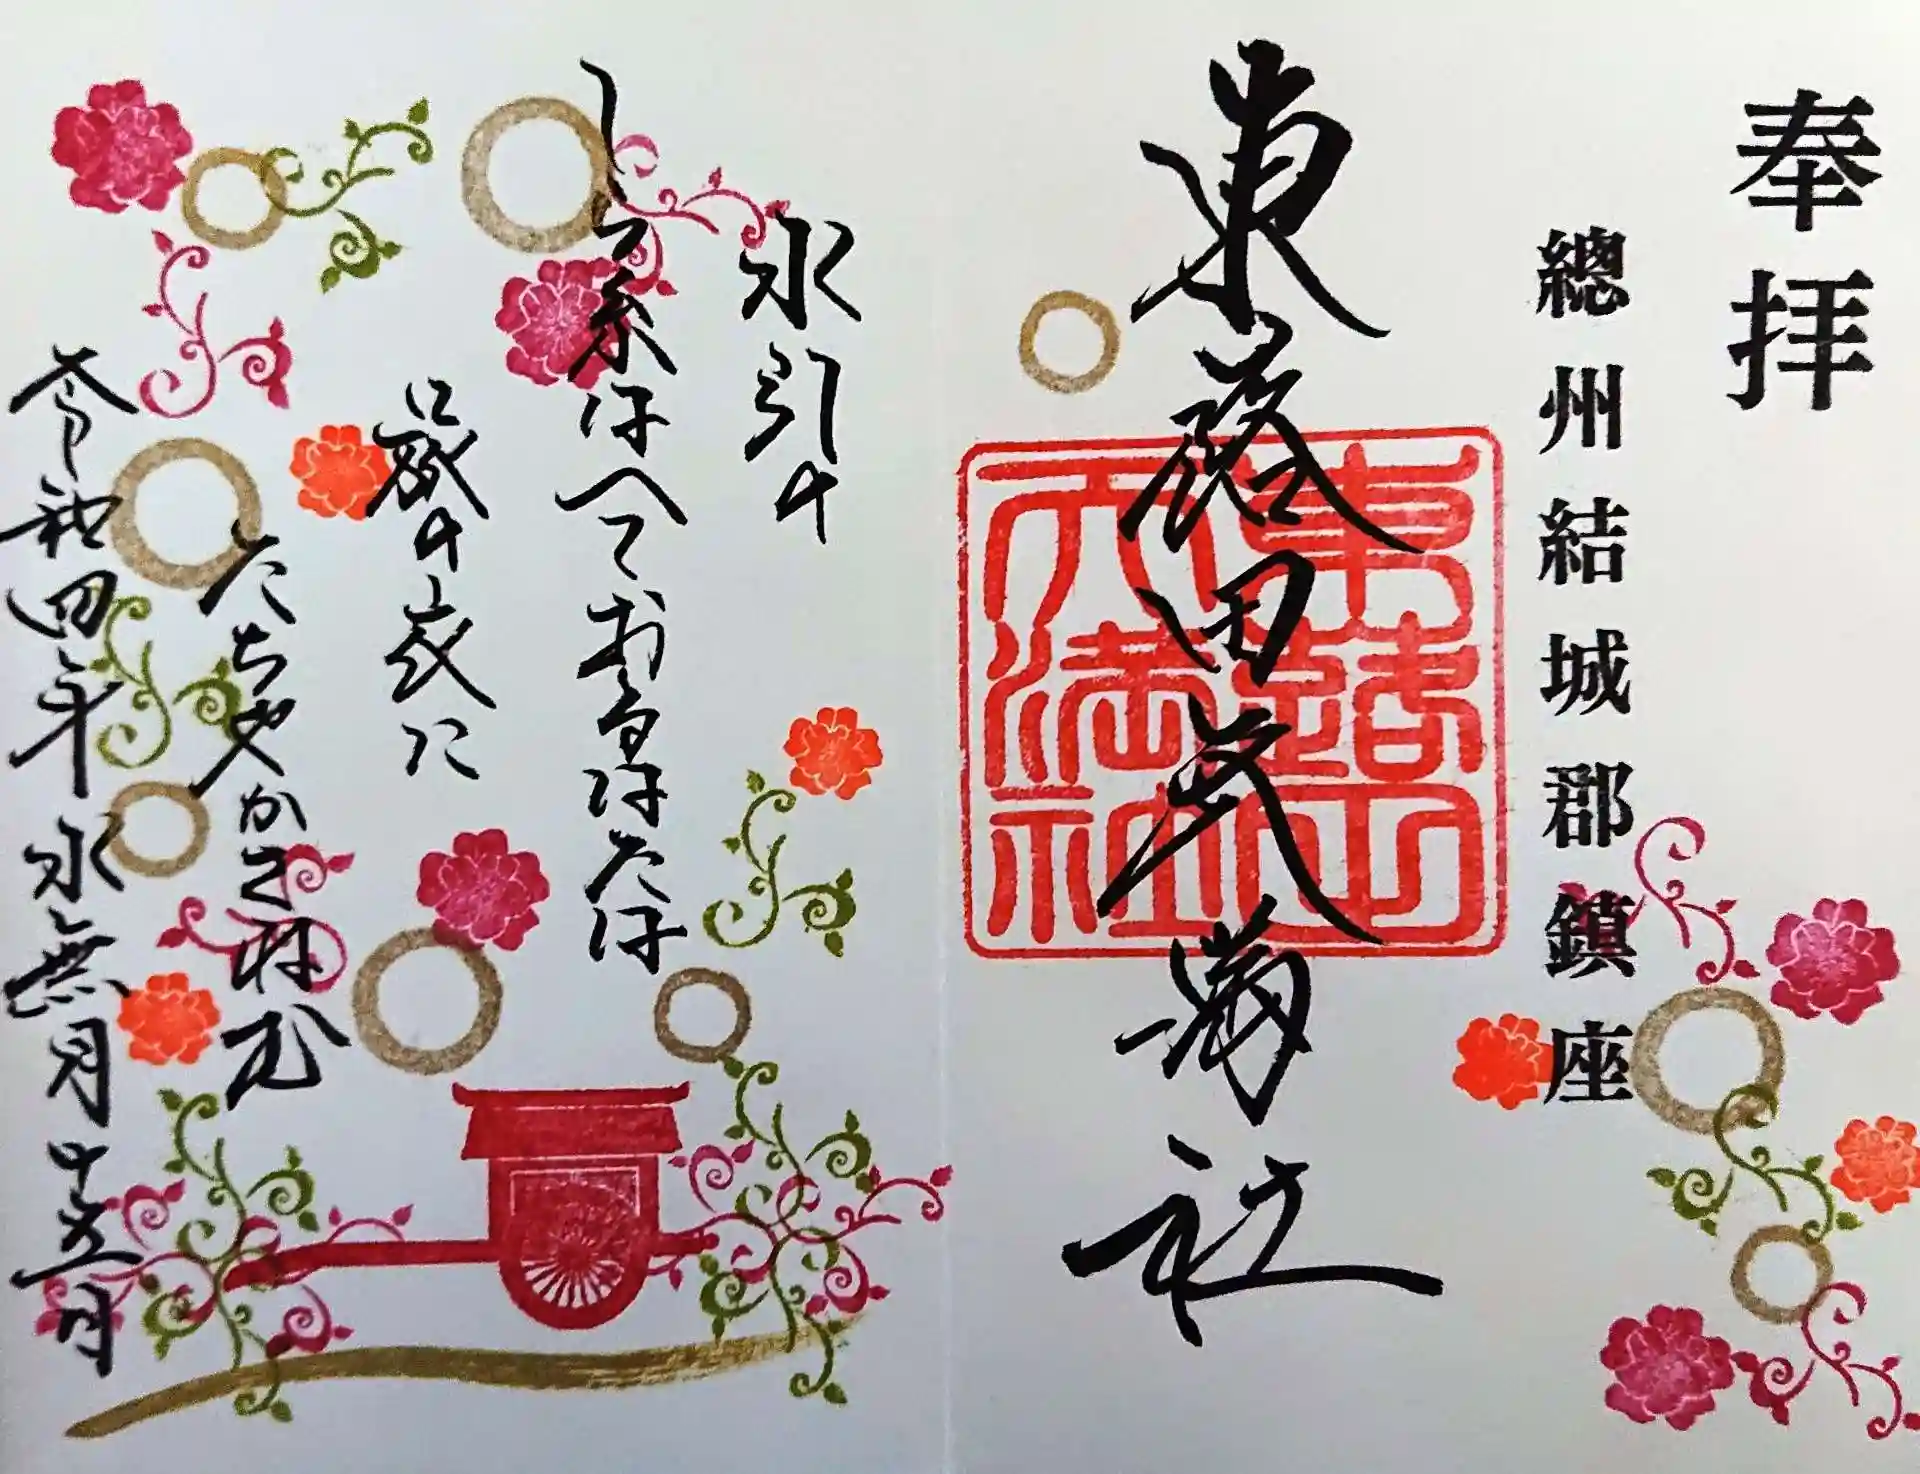 奉拝
總州結城郡鎮座
東蕗田天満社
東蕗田天満社
水引の
しら糸はへておるはたは
旅の衣に
たちやかさねむ
令和四年水無月十五日